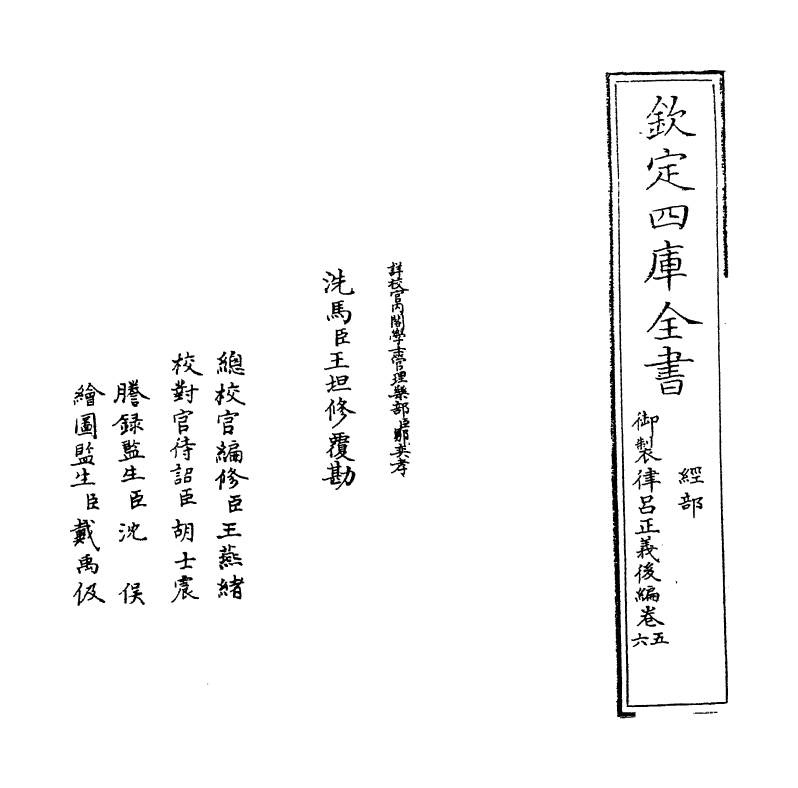 欽定四庫全書
經部
御製律呂正義後編卷五六
詳校官內閣學士管理樂部臣鄒奕孝
洗馬臣王坦修覆勘
總校官編修臣王燕緒
校對官待詔臣胡士震
謄録監生臣沈俁
繪圖監生臣戴禹伋